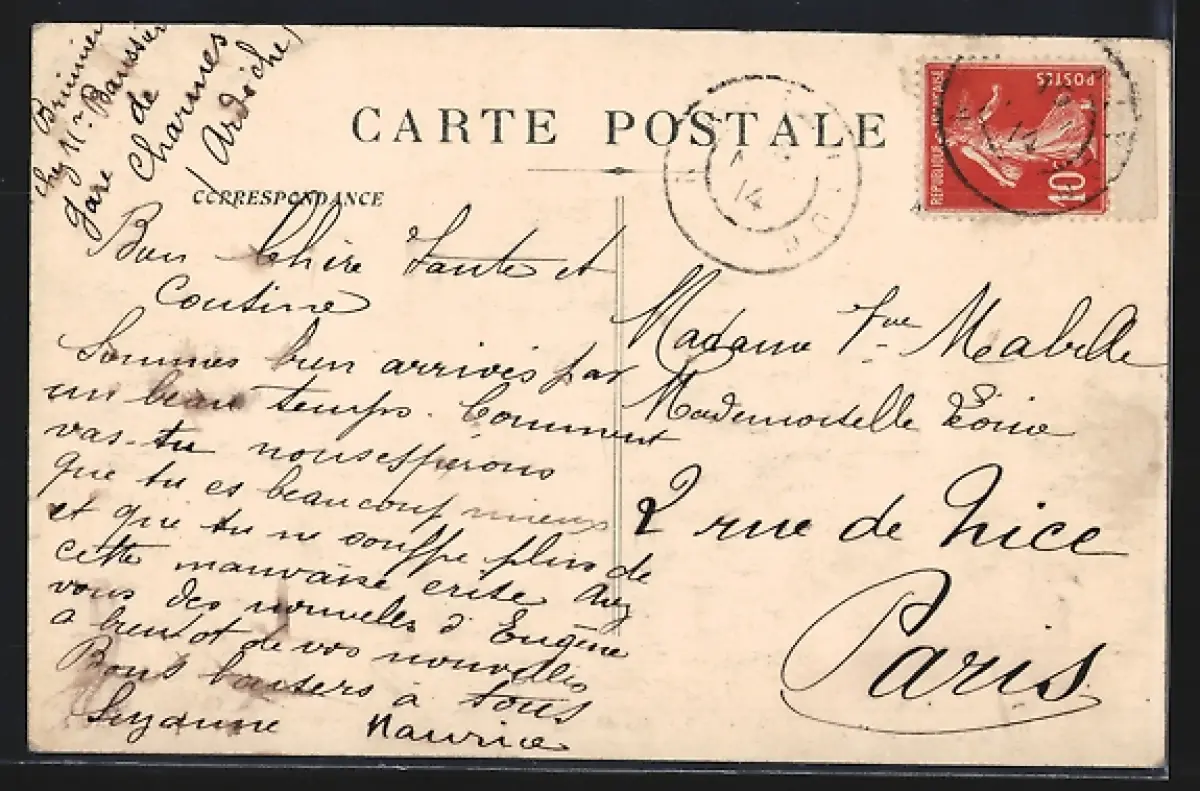 chez Mr Brunier
gare de
Charmes
(Ardèche)
CARTE POSTALE
CORRESPONDANCE
RÉPUBLIQUE FRANÇAISE
POSTES
10c
14
Bien Chère Tante et
Cousine
Sommes bien arrivés par
un beau temps. Comment
vas-tu nous espérons
que tu es beaucoup mieux
et que tu ne souffre plus de
cette mauvaise crise Avez
vous des nouvelles d'Eugène
a bientot de vos nouvelles
Bons baisers à tous
Suzanne Maurice
Madame Vve Mabille
Mademoiselle
2 rue de Nice
Paris